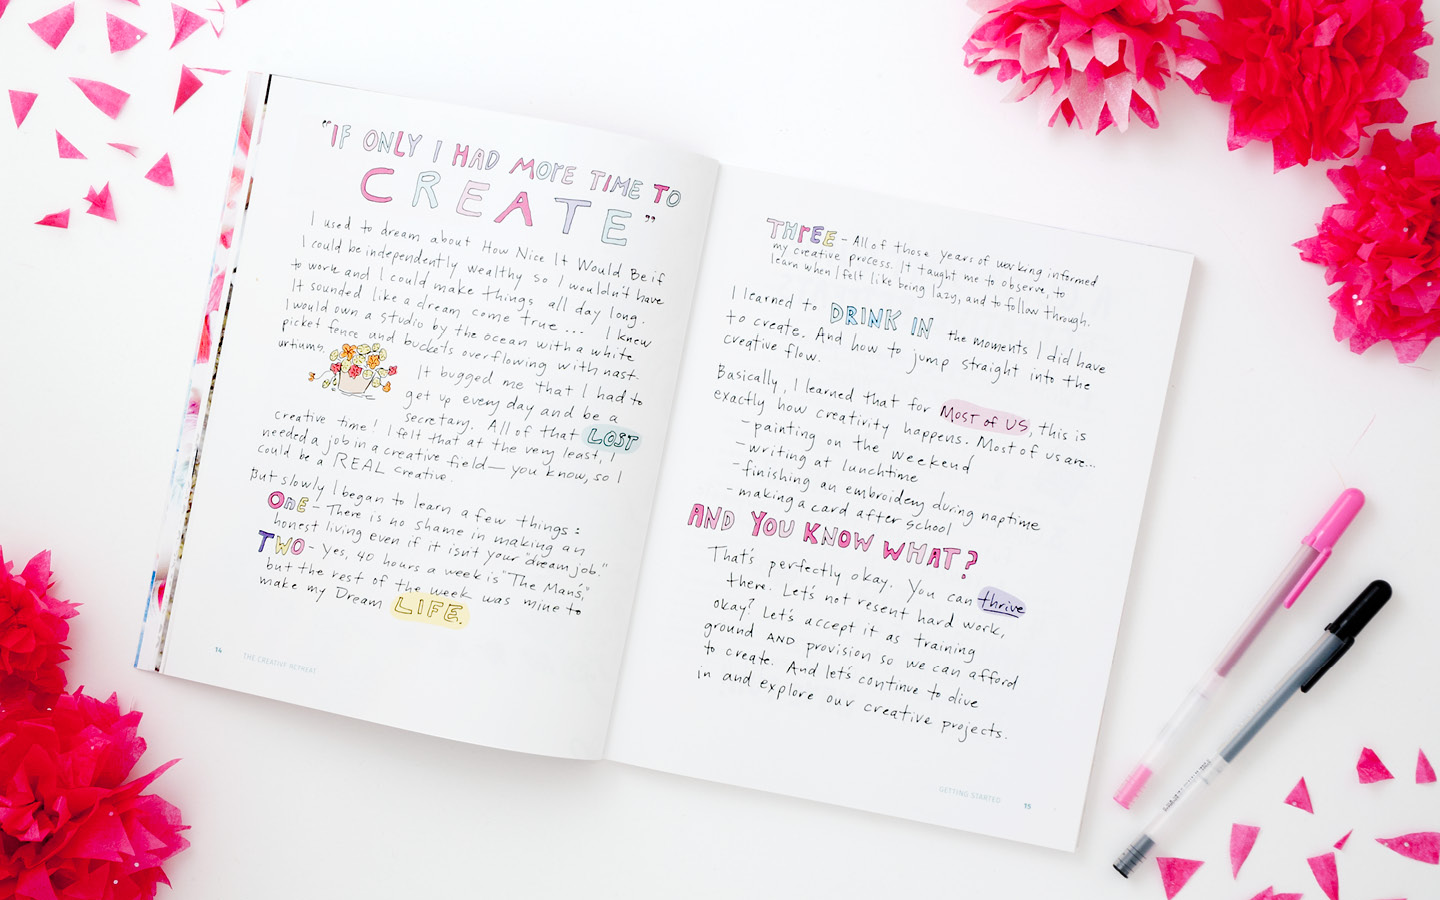 "IF ONLY I HAD MORE TIME TO
CREATE"
I used to dream about How Nice It Would Be if
I could be independently wealthy so I wouldn't have
to work and I could make things all day long.
It sounded like a dream come true... I knew
I would own a studio by the ocean with a white
picket fence and buckets overflowing with nast-
urtiums.
It bugged me that I had to
get up every day and be a
secretary. All of that LOST
creative time! I felt that at the very least, I
needed a job in a creative field— you know, so I
could be a REAL creative.
But slowly I began to learn a few things:
ONE - There is no shame in making an
honest living even if it isn't your "dream job."
TWO - Yes, 40 hours a week is "The Man's,"
but the rest of the week was mine to
make my Dream LIFE.
14 THE CREATIVE RETREAT
THREE - All of those years of working informed
my creative process. It taught me to observe, to
learn when I felt like being lazy, and to follow through.
I learned to DRINK IN the moments I did have
to create. And how to jump straight into the
creative flow.
Basically, I learned that for MOST of US, this is
exactly how creativity happens. Most of us are...
- painting on the weekend
- writing at lunchtime
- finishing an embroidery during naptime
- making a card after school
AND YOU KNOW WHAT?
That's perfectly okay. You can thrive
there. Let's not resent hard work,
okay? Let's accept it as training
ground AND provision so we can afford
to create. And let's continue to dive
in and explore our creative projects.
GETTING STARTED 15